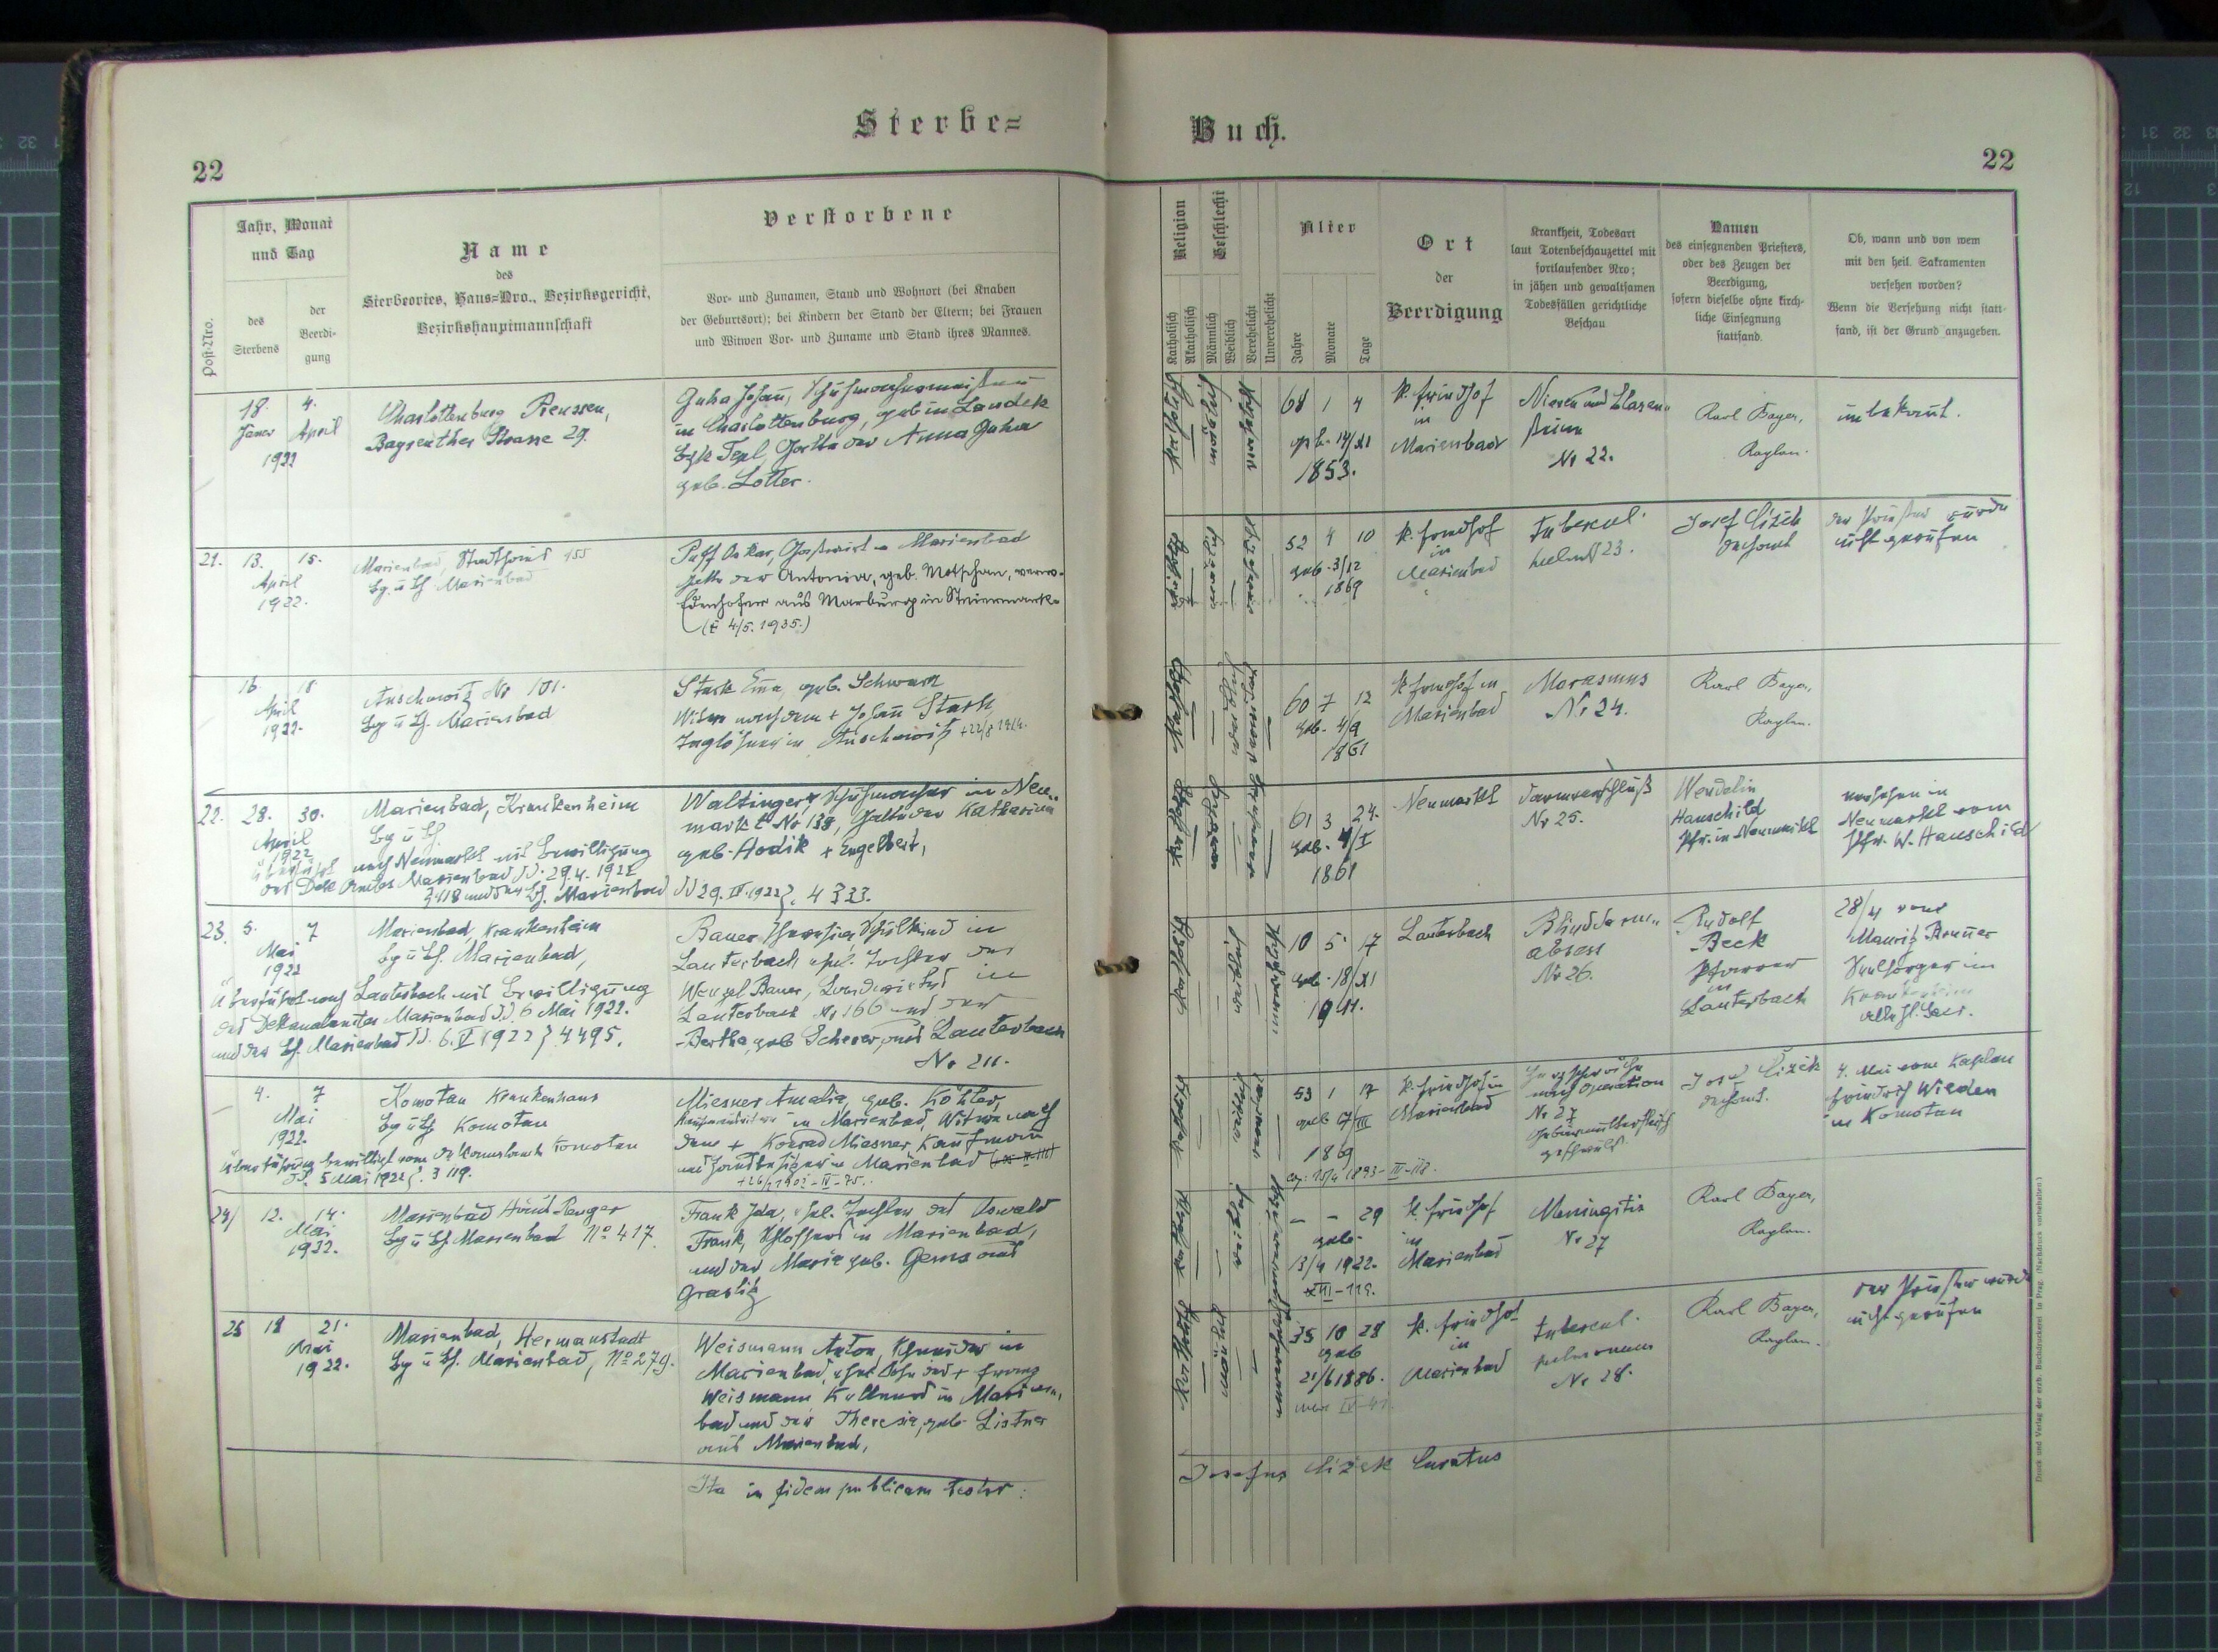 Sterbe=
Buch.
22
22
Post-Nro.
Jahr, Monat
und Tag
des
Sterbens
der
Beerdi-
gung
Name
des
Sterbeortes, Haus=Nro., Bezirksgericht,
Bezirkshauptmannschaft
Verstorbene
Vor- und Zunamen, Stand und Wohnort (bei Knaben
der Geburtsort); bei Kindern der Stand der Eltern; bei Frauen
und Witwen Vor- und Zuname und Stand ihres Mannes.
Religion
Katholisch
Akatholisch
Geschlecht
Männlich
Weiblich
Verehelicht
Unverehelicht
Alter
Jahre
Monate
Tage
Ort
der
Beerdigung
Krankheit, Todesart
laut Totenbeschauzettel mit
fortlaufender Nro;
in jähen und gewaltsamen
Todesfällen gerichtliche
Beschau
Namen
des einsegnenden Priesters,
oder des Zeugen der
Beerdigung,
sofern dieselbe ohne kirch-
liche Einsegnung
stattfand.
Ob, wann und von wem
mit den heil. Sakramenten
versehen worden?
Wenn die Versehung nicht statt-
fand, ist der Grund anzugeben.
18. 4.
Jäner April
1922
Charlottenburg Preussen,
Bayreuther Strasse 29.
Guha Johañ, Schuhmachermeister
in Charlottenburg, geb in Landek
Bzk Tepl, Gatte der Anna Guha
geb. Lotter.
katholisch
68 1 4
geb. 14/XI
1853.
k. Friedhof
in
Marienbad
Nieren und Blasen-
steine
Nr 22.
Karl Bayer,
Kaplan.
unbekannt.
21. 13. 15.
April
1922.
Marienbad, Stadthaus 455
Bg. ü Bh. Marienbad
Puff Oskar, Gastwirt in Marienbad
Gatte der Antonia, geb. Motschan, verw.
Edenhofer aus Marburg in Steiermark.
(† 4/5. 1935.)
52 4 10
geb. 3/12
1869
k. Friedhof
in
Marienbad
Tubercul.
Josef Čížek
Dechant
der Priester wurde
nicht gerufen
16. 18.
April
1922.
Auschowitz Nr 101.
Bg ü Bh. Marienbad
Stark Eṁa, geb. Schwarz
Witwe nach dem + Johañ Stark
Taglöhner in Auschowitz
60 7 12
geb. 4/9
1861
k. Friedhof in
Marienbad
Marasmus
Nr 24.
Karl Bayer,
Kaplan.
22. 28. 30.
April
1922
Marienbad, Krankenheim
Bg ü Bh.
überführt nach Neumarkt mit Bewilligung
des Dek Amtes Marienbad dd. 29.4.1922
Z 418 und der Bh. Marienbad dd 29.IV.1922 Z. 4333.
Waltinger, Schuhmacher in Neu-
markt Nr 138, Gatte der Katharina
geb. Hodik + Engelbert,
61 3 24.
geb. 4/I
1861
Neumarkt
Darmverschluß
Nr 25.
Wendelin
Hauschild
Pfr. in Neumarkt
versehen in
Neumarkt vom
Pfr. W. Hauschild
23. 5. 7
Mai
1922
Marienbad, Krankenheim
Bg ü Bh. Marienbad,
Überführt nach Lauterbach mit Bewilligung
des Dekanalamtes Marienbad dd. 6 Mai 1922.
und der Bh. Marienbad dd. 6.V 1922 Z 4495.
Bauer Theresia Schulkind in
Lauterbach ehel. Tochter des
Wenzel Bauer, Landwirtes in
Lauterbach Nr 166 und der
Bertha, geb Scherer, aus Lauterbach
Nr 211.
10 5 17
geb. 18/XI
1911.
Lauterbach
Blinddarm-
abscess
Nr 26.
Rudolf
Beck
Pfarrer
in
Lauterbach
28/4 vom
Seelsorger im
4. 7
Mai
1922.
Komotau Krankenhaus
Bg ü Bh Komotau
Überführung bewilligt vom Dekanalamte Komotau
dd. 5 Mai 1922 Z. 3119.
Miesner Amalia, geb. Köhler,
in Marienbad, Witwe nach
dem + Konrad Miesner, Kaufmann
und Hausbesitzer in Marienbad
53 1 17
geb 17/III
1869
k. Friedhof in
Marienbad
Herzschwäche
nach Operation
Nr 27
Josef Čížek
Dechant.
4. Mai vom Kaplan
Friedrich Wieden
in Komotau
24/ 12. 14.
Mai
1922.
Marienbad Haus Panger
Bg ü Bh. Marienbad No 417
Frank Ida, ehel. Tochter des Oswald
Frank, Schlossers in Marienbad,
und der Maria geb. Gems aus
Graslitz
– – 29
geb.
13/4 1922.
k. Friedhof
in
Marienbad
Meningitis
Nr 27
Karl Bayer,
Kaplan.
25 18 21.
Mai
1922.
Marienbad, Hermanstadt
Bg ü Bh. Marienbad, No 279.
Weismann Anton, Schneider in
Marienbad, ehel. Sohn des + Franz
Weismann, Kellners in Marien-
bad und der Theresia, geb. Listner
aus Marienbad,
35 10 28
geb
21/6 1886.
k. Friedhof
in
Marienbad
Tubercul.
pulmonum
Nr 28.
Karl Bayer,
Kaplan.
der Priester wurde
nicht gerufen
Ita in fidem publicam testor:
Josefus Čížek Curatus
Druck und Verlag der erzb. Buchdruckerei in Prag. (Nachdruck vorbehalten.)